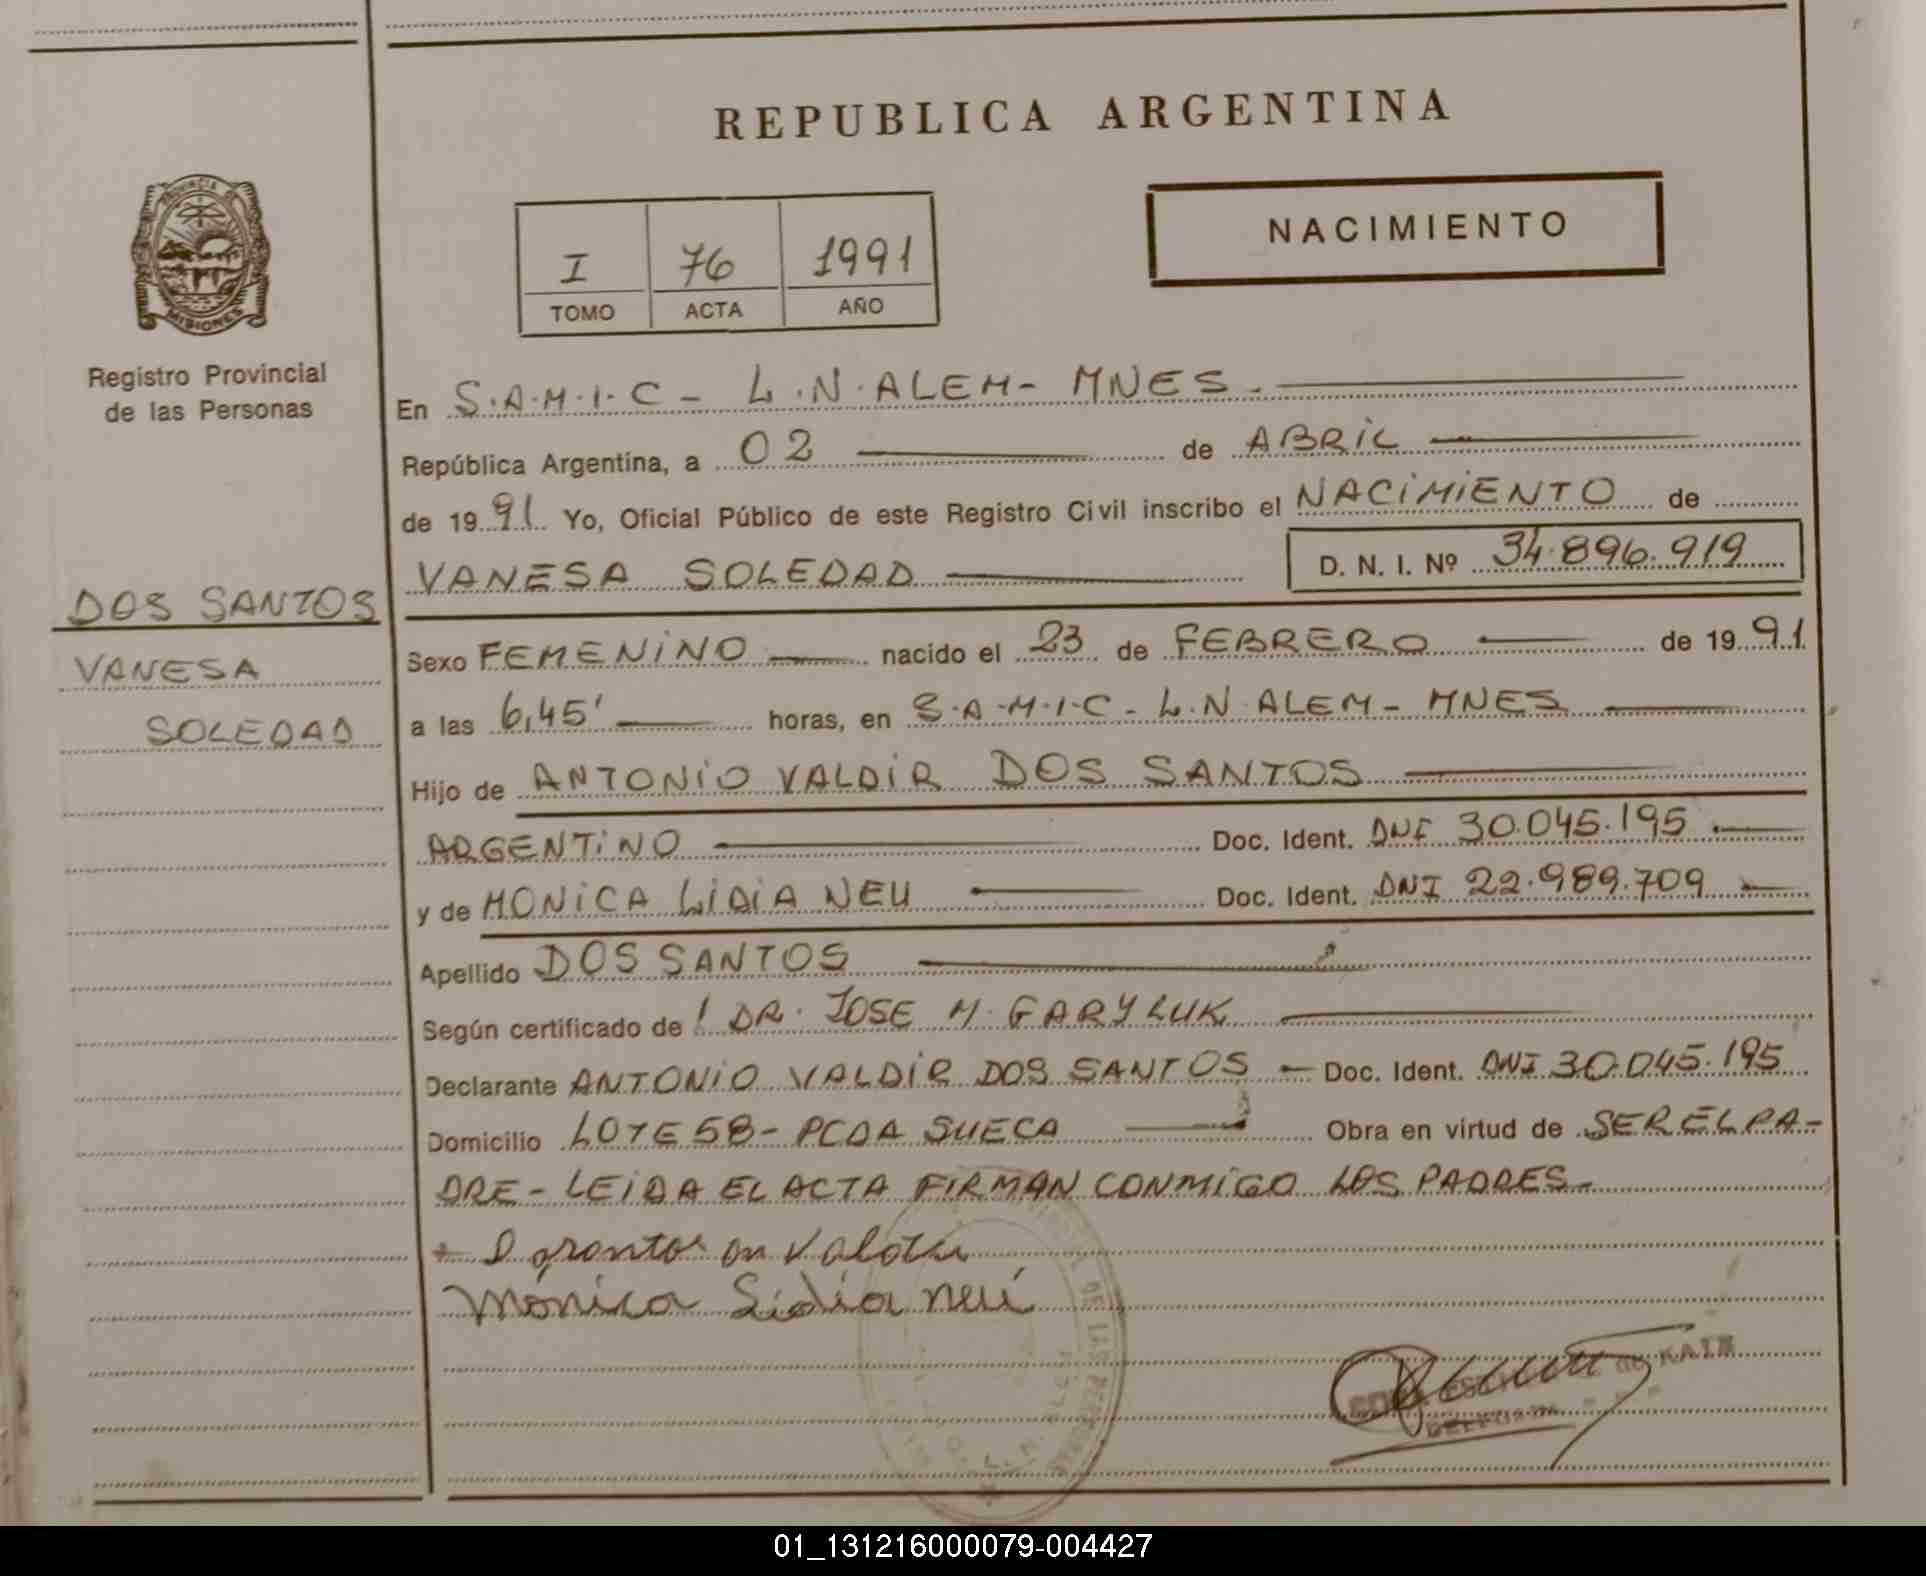 REPUBLICA ARGENTINA
PROVINCIA DE
MISIONES
Registro Provincial
de las Personas
DOS SANTOS
VANESA
SOLEDAD
I 76 1991
TOMO ACTA AÑO
NACIMIENTO
En S.A.M.I.C - L.N.ALEM- MNES.
República Argentina, a 02 de ABRIL
de 1991 Yo, Oficial Público de este Registro Civil inscribo el NACIMIENTO de
VANESA SOLEDAD D. N. I. Nº 34.896.919
Sexo FEMENINO nacido el 23 de FEBRERO de 1991
a las 6,45' horas, en S.A.M.I.C - L.N.ALEM - MNES
Hijo de ANTONIO VALDIR DOS SANTOS
ARGENTINO Doc. Ident. DNI 30.045.195
y de MONICA LIDIA NEU Doc. Ident. DNI 22.989.709
Apellido DOS SANTOS
Según certificado de DR. JOSE M. GARYLUK
Declarante ANTONIO VALDIR DOS SANTOS - Doc. Ident. DNI 30.045.195
Domicilio LOTE 58 - PCDA SUECA Obra en virtud de SER EL PA-
DRE - LEIDA EL ACTA FIRMAN CONMIGO LOS PADRES-
Mónica Lidia Neu
01_131216000079-004427